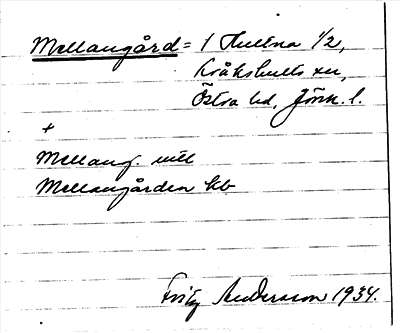 Mellangård = 1 Hultna 1/2,
Kråkshults sn,
Östra hd, Jönk. l.
+
Mellang. vill
Mellangården hb
Fritz Andersson 1934.